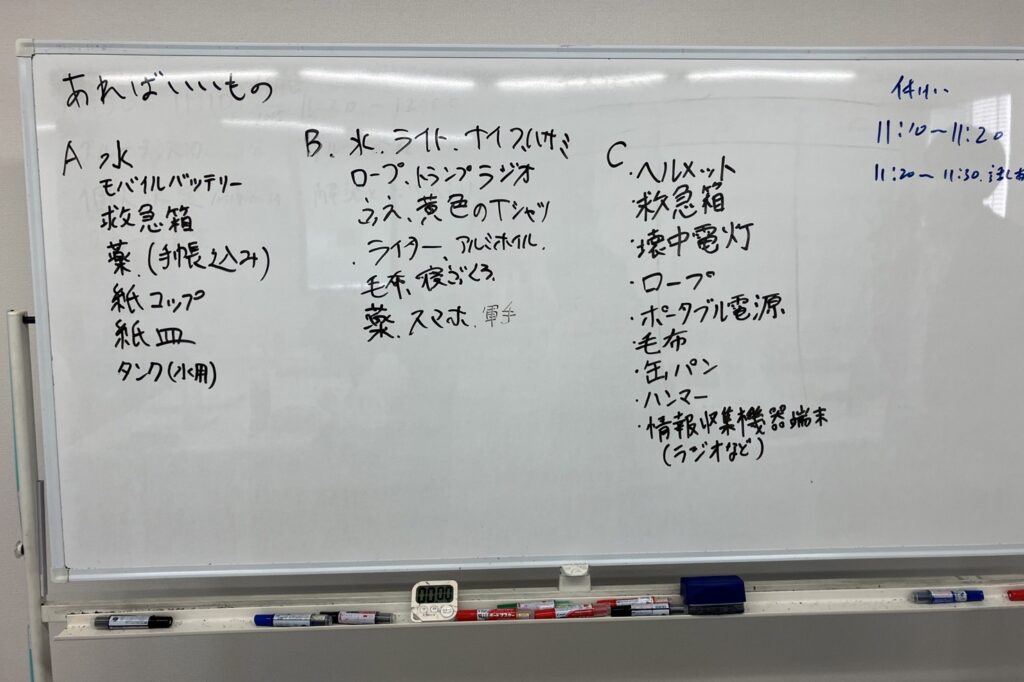 あればいいもの
A 水
モバイルバッテリー
救急箱
薬.(手帳込み)
紙コップ
紙皿
タンク(水用)
B. 水.ライト.ナイフ.ハサミ
ロープ.トランプ ラジオ
ふえ、黄色のTシャツ
.ライター、アルミホイル.
毛布、寝ぶくろ
薬.スマホ.軍手
C
・ヘルメット
・救急箱
・壊中電灯
・ロープ
・ポータブル電源
・毛布
・缶パン
・ハンマー
・情報収集機器端末
(ラジオなど)
11:10〜11:20
11:20〜11:30.
00:00